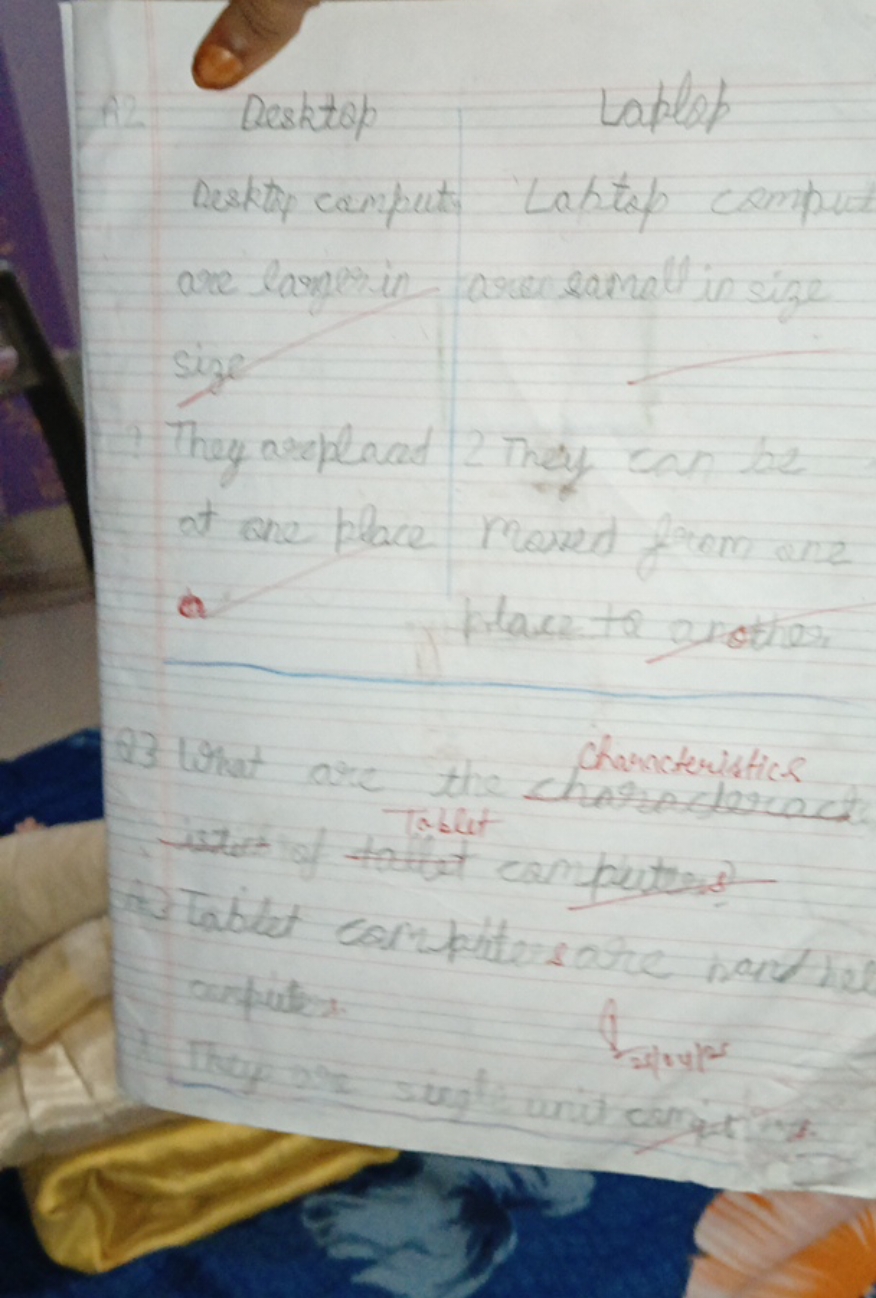 A2 Desktop Laptop
Desktop comput Laptop comput
are larger in are samall in size
size
They are placed 2 They can be
at one place moved from one
place to another.
Q3 What are the characteristics
of Tablet computers?
A3 Tablet computers are hand hel
computers.
They are single unit
25/04/25